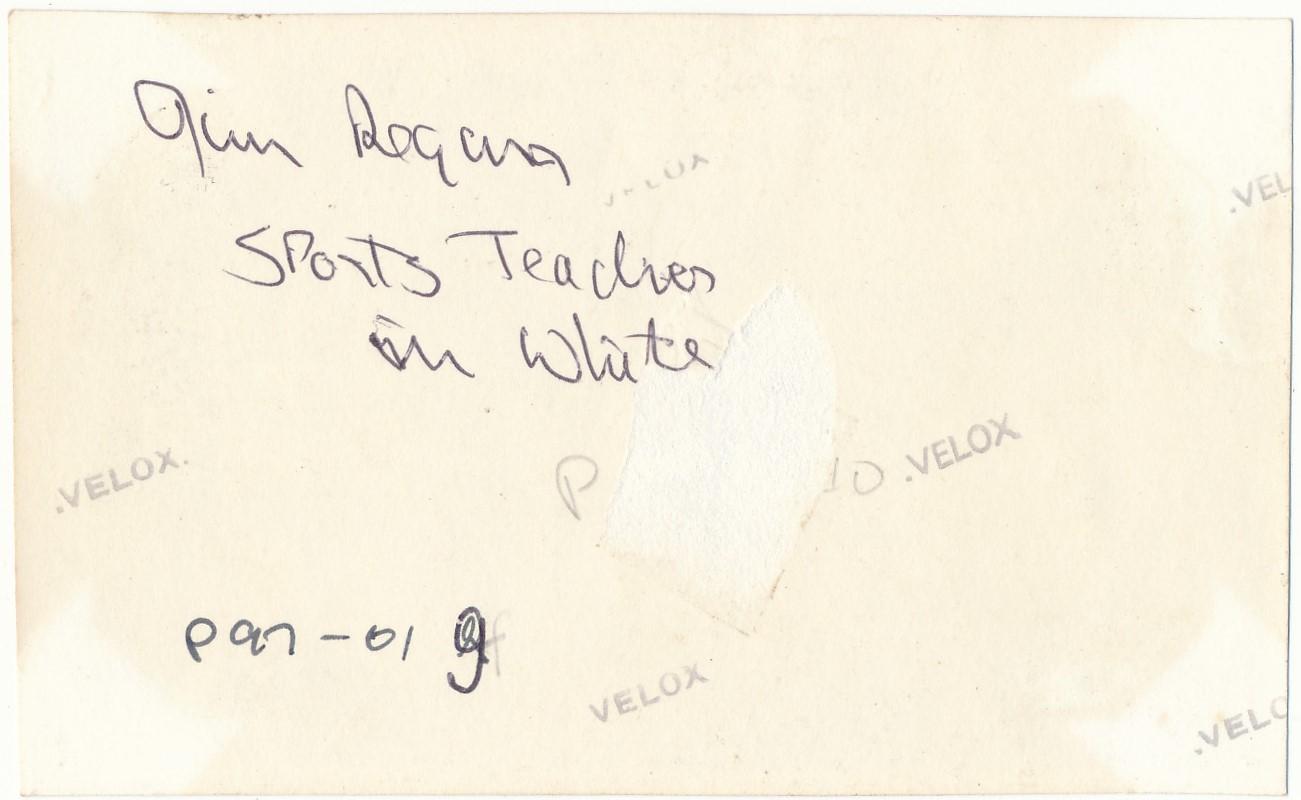 Jim Regan
VELOX
.VEL
Sports Teacher
in White
P 10 .VELOX
.VELOX.
P97-01 g
VELOX
.VELO